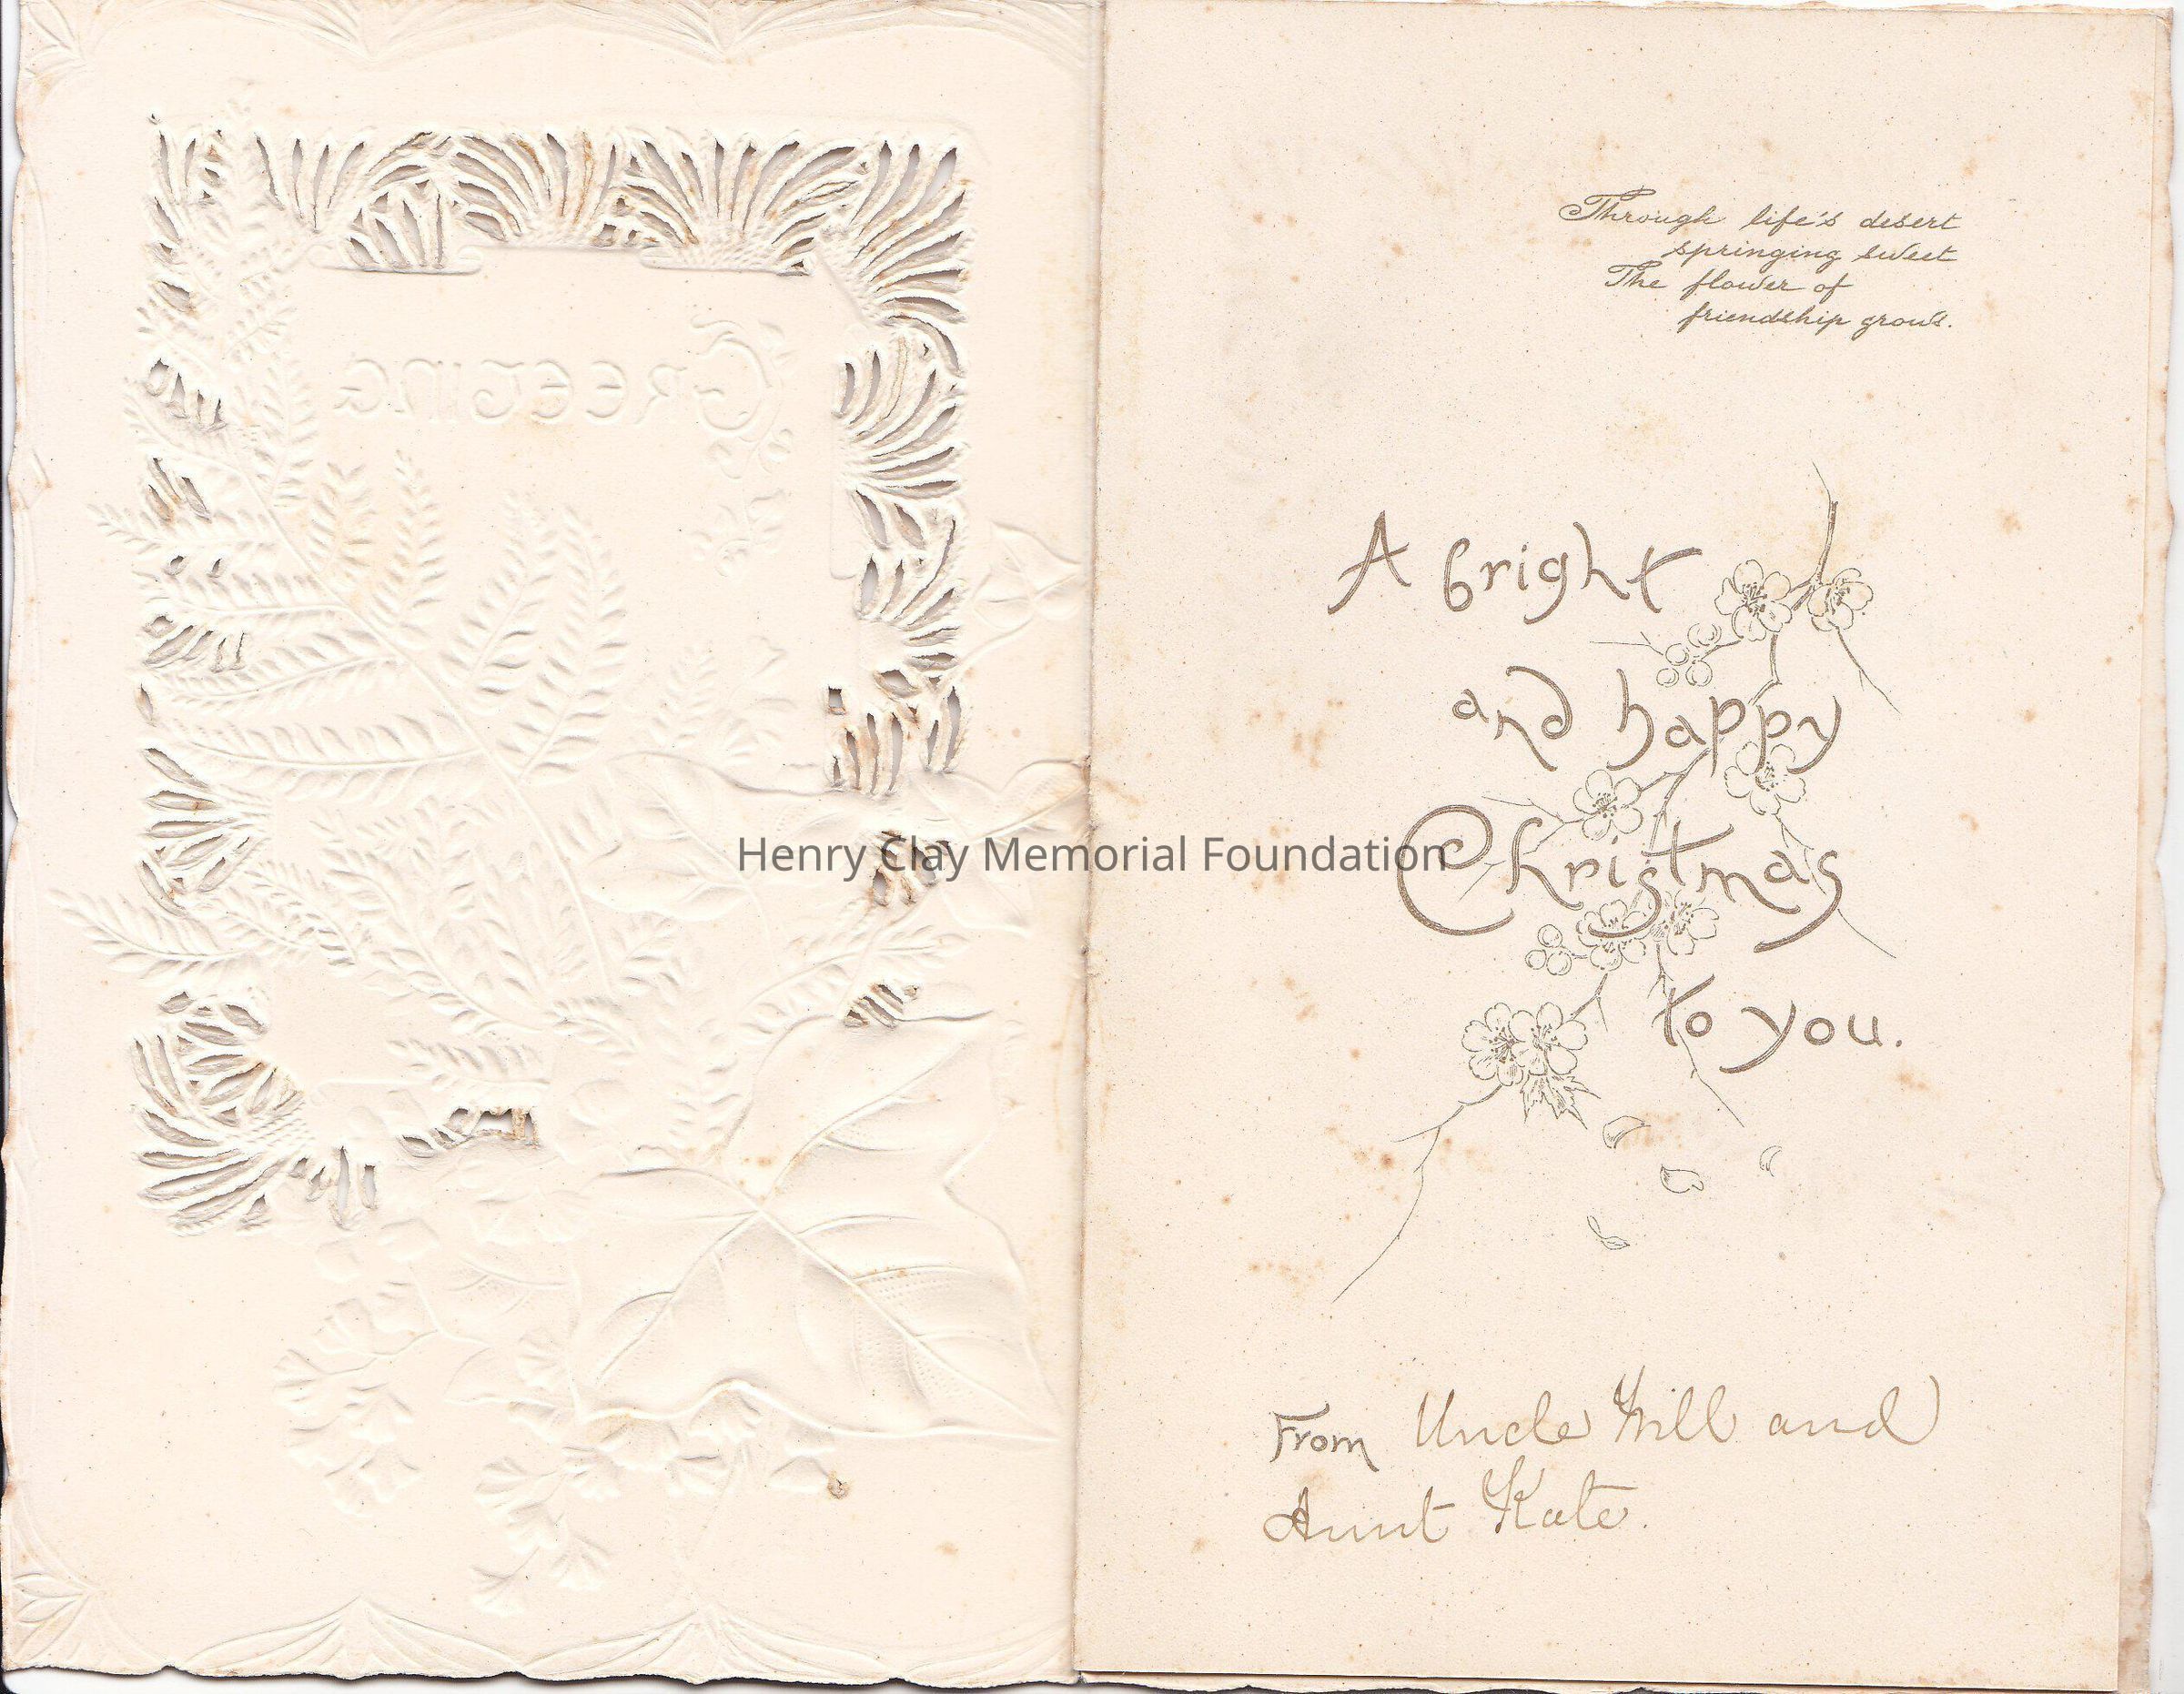 GREETING
Through life's desert
springing sweet
The flower of
friendship grows.
A bright
and happy
Henry Clay Memorial Foundation
Christmas
to you.
From Uncle Will and
Aunt Kate.